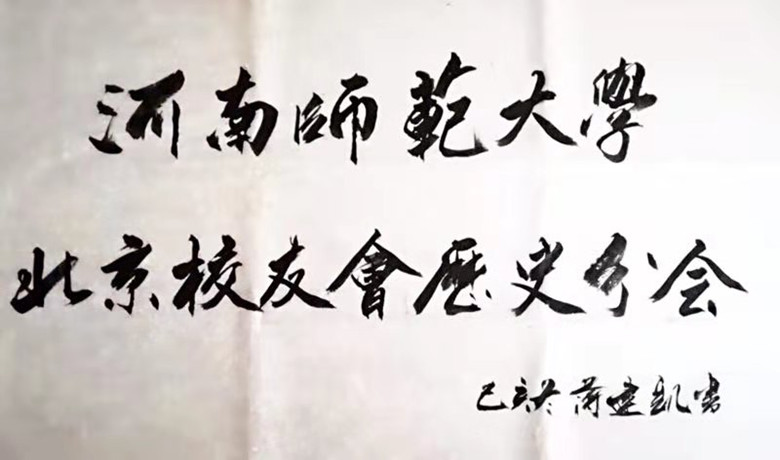 河南師範大學
北京校友會歷史分会
己亥冬蔣建凱書